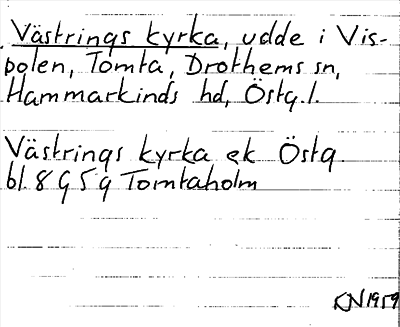 Västrings kyrka, udde i Vis-
polen, Tomta, Drothems sn,
Hammarkinds hd, Östg.l.
Västrings kyrka ek Östg.
bl. 8 G 5 g Tomtaholm
KN 1959